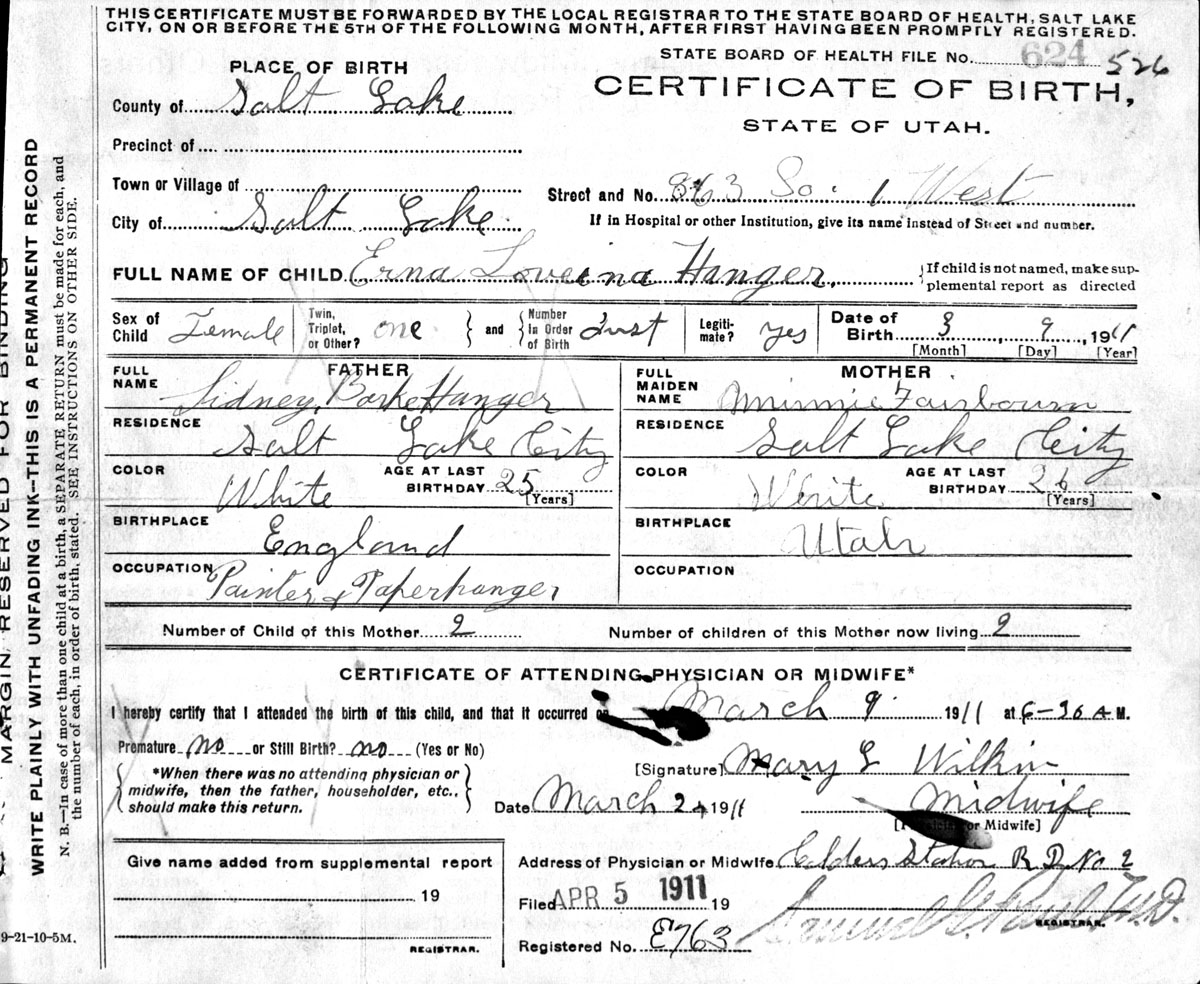 THIS CERTIFICATE MUST BE FORWARDED BY THE LOCAL REGISTRAR TO THE STATE BOARD OF HEALTH, SALT LAKE
CITY, ON OR BEFORE THE 5TH OF THE FOLLOWING MONTH, AFTER FIRST HAVING BEEN PROMPTLY REGISTERED.
STATE BOARD OF HEALTH FILE No. 624 526
PLACE OF BIRTH
CERTIFICATE OF BIRTH,
STATE OF UTAH.
County of Salt Lake
Precinct of
Town or Village of
Street and No. 863 So. 1 West
City of Salt Lake
If in Hospital or other Institution, give its name instead of Street and number.
FULL NAME OF CHILD Erna Loveina Hanger.
If child is not named, make sup-
plemental report as directed
Sex of Child Female
Twin, Triplet, or Other? one
and
Number In Order of Birth
Legiti-mate? yes
Date of Birth 3, 9, 1911
[Month] [Day] [Year]
FATHER
FULL NAME Sidney Hanger
RESIDENCE Salt Lake City
COLOR White
AGE AT LAST BIRTHDAY 25 [Years]
BIRTHPLACE England
OCCUPATION Painter & Paperhanger
MOTHER
FULL MAIDEN NAME Minnie Fairbourn
RESIDENCE Salt Lake City
COLOR White
AGE AT LAST BIRTHDAY 26 [Years]
BIRTHPLACE Utah
OCCUPATION
Number of Child of this Mother 2
Number of children of this Mother now living 2
CERTIFICATE OF ATTENDING PHYSICIAN OR MIDWIFE*
I hereby certify that I attended the birth of this child, and that it occurred on March 9 1911 at 6-36 A M.
Premature no or Still Birth? no (Yes or No)
*When there was no attending physician or
midwife, then the father, householder, etc.,
should make this return.
[Signature] Mary L Wilkin
Date March 24 1911
Midwife
[Physician or Midwife]
Give name added from supplemental report
19
REGISTRAR.
Address of Physician or Midwife Calders Station R D No 2
Filed APR 5 1911 19
Registered No. E763
REGISTRAR.
9-21-10-5M.
MARGIN RESERVED FOR BINDING
WRITE PLAINLY WITH UNFADING INK—THIS IS A PERMANENT RECORD
N. B.—In case of more than one child at a birth, a SEPARATE RETURN must be made for each, and
the number of each, in order of birth, stated. SEE INSTRUCTIONS ON OTHER SIDE.